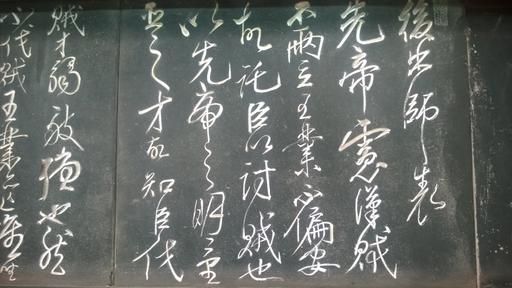 後出師表
先帝慮漢賊
不兩立王業不偏安
故託臣以討賊也
以先帝之明量
臣之才故知臣伐
賊才弱敵強也然
不伐賊王業亦亡惟